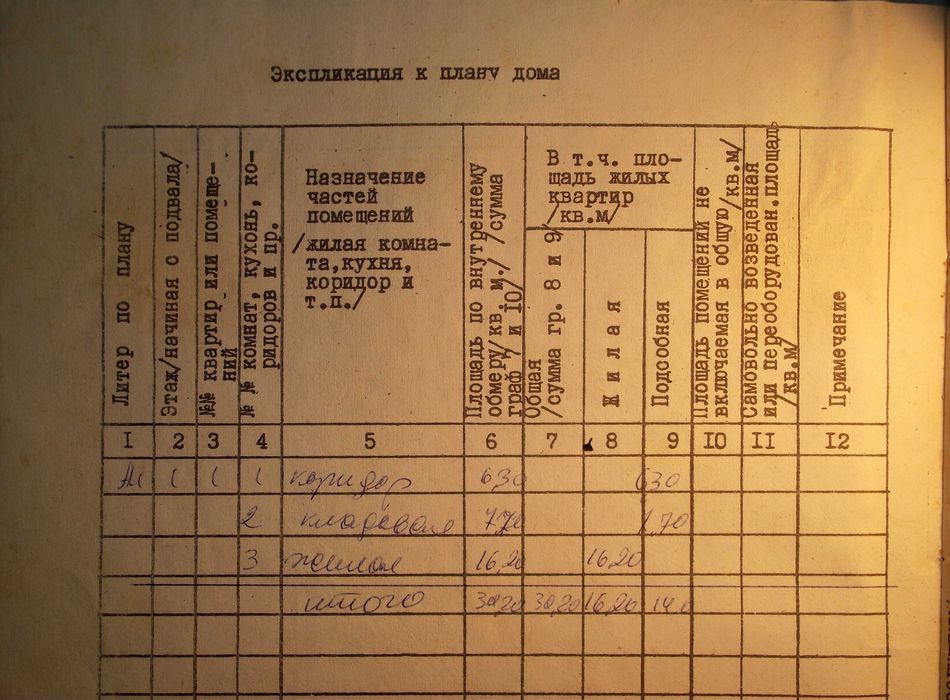 Экспликация к плану дома
Литер по плану
Этаж/начиная с подвала/
№№ квартир или помеще-
ний
№ № комнат, кухонь, ко-
ридоров и пр.
Назначение
частей
помещений
/жилая комна-
та,кухня,
коридор и
т.п./
Площадь по внутреннему
обмеру/кв. м./ /сумма
граф 7 и 10/
В т.ч. пло-
щадь жилых
квартир
/кв.м/
Общая
/сумма гр. 8 и 9/
Жилая
Подсобная
Площадь помещений не
включаемая в общую/кв.м/
Самовольно возведенная
или переоборудован.площадь
/кв.м/
Примечание
I 2 3 4 5 6 7 8 9 IO II I2
А1 1 1 1 коридор 6,30 6,30
2 кладовая 7,70 7,70
3 жилая 16,20 16,20
итого 30,20 30,20 16,20 14,0